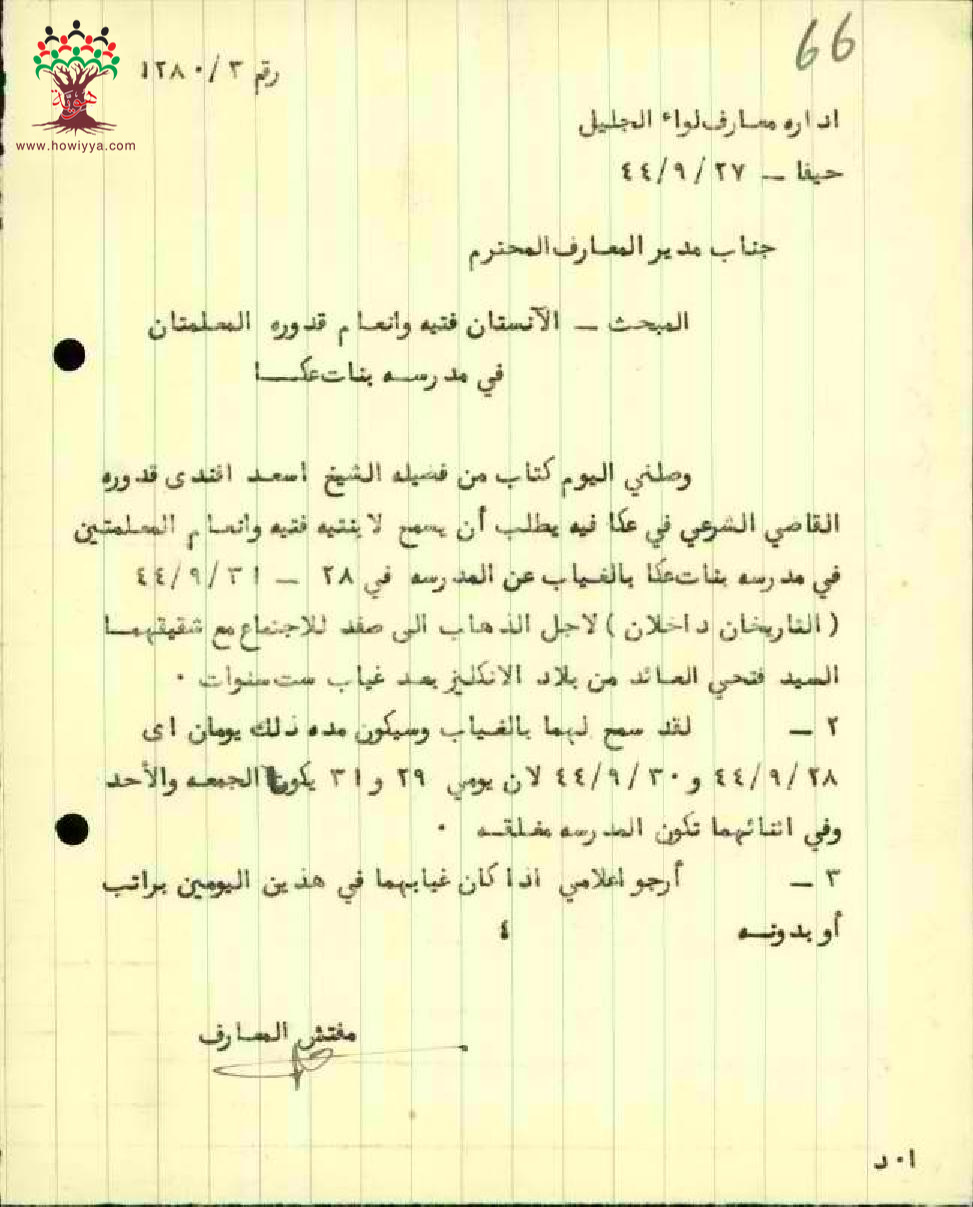 66
هوية
www.howiyya.com
رقم ٣ /١٢٨٠
اداره معارف لواء الجليل
حيفا – ٢٧ /٩ /٤٤
جناب مدير المعارف المحترم
المبحث – الآنستان فتيه وانعام قدوره المعلمتان
في مدرسه بنات عكا
وصلني اليوم كتاب من فضيله الشيخ اسعد افندى قدوره
القاضي الشرعي في عكا فيه يطلب أن يسمح لابنتيه فتيه وانعام المعلمتين
في مدرسه بنات عكا بالغياب عن المدرسه في ٢٨ – ٣١ /٩ /٤٤
( التاريخان داخلان ) لاجل الذهاب الى صفد للاجتماع مع شقيقهما
السيد فتحي العائد من بلاد الانكليز بعد غياب ست سنوات .
٢ – لقد سمح لهما بالغياب وسيكون مده ذلك يومان اى
٢٨ /٩ /٤٤ و ٣٠ /٩ /٤٤ لان يومي ٢٩ و ٣١ يكون الجمعه والأحد
وفي اثنائهما تكون المدرسه مغلقه .
٣ – أرجو اعلامي اذا كان غيابهما في هذين اليومين براتب
أو بدونه ٤
مفتش المعارف
ا . د